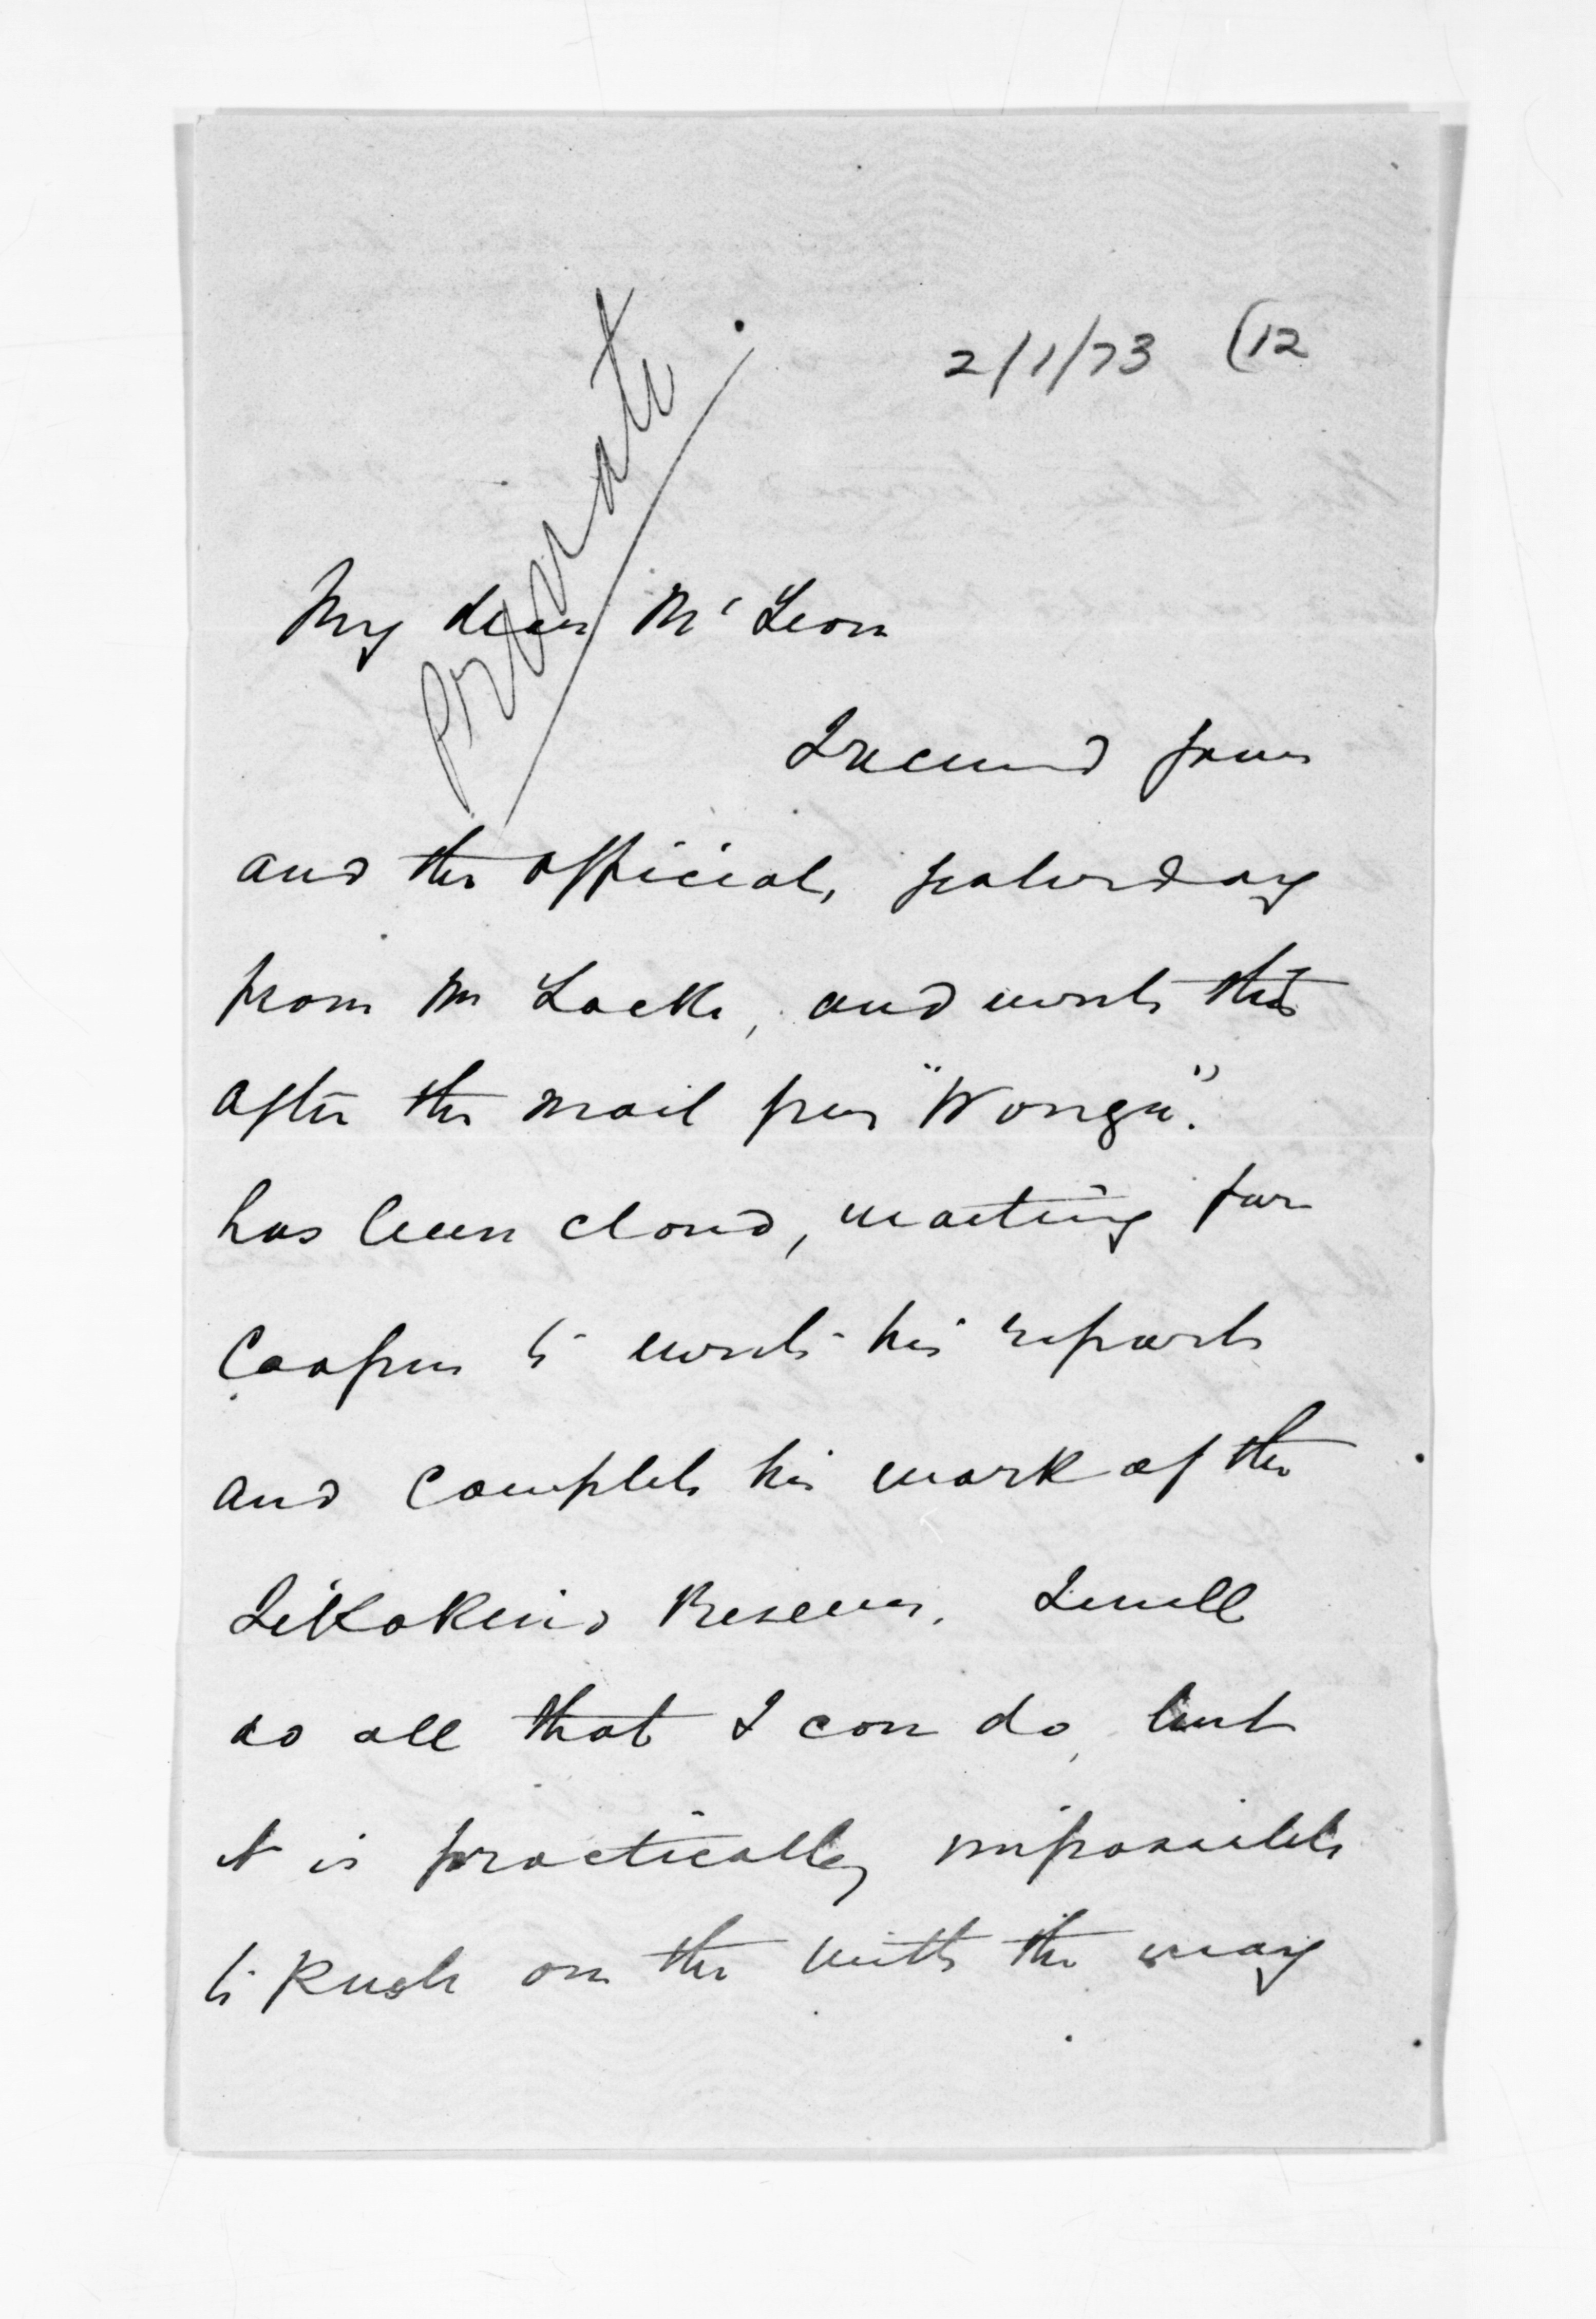 Private.
2/1/73 (12
My dear McLean
I received yours
and the official, yesterday
from Mr Locke, and write this
after the mail per "Wonga".
has been closed, waiting for
Cooper to write his reports
and complete his work of the
Reserves. I will
do all that I can do, but
it is practically impossible
to Rush on the with the way